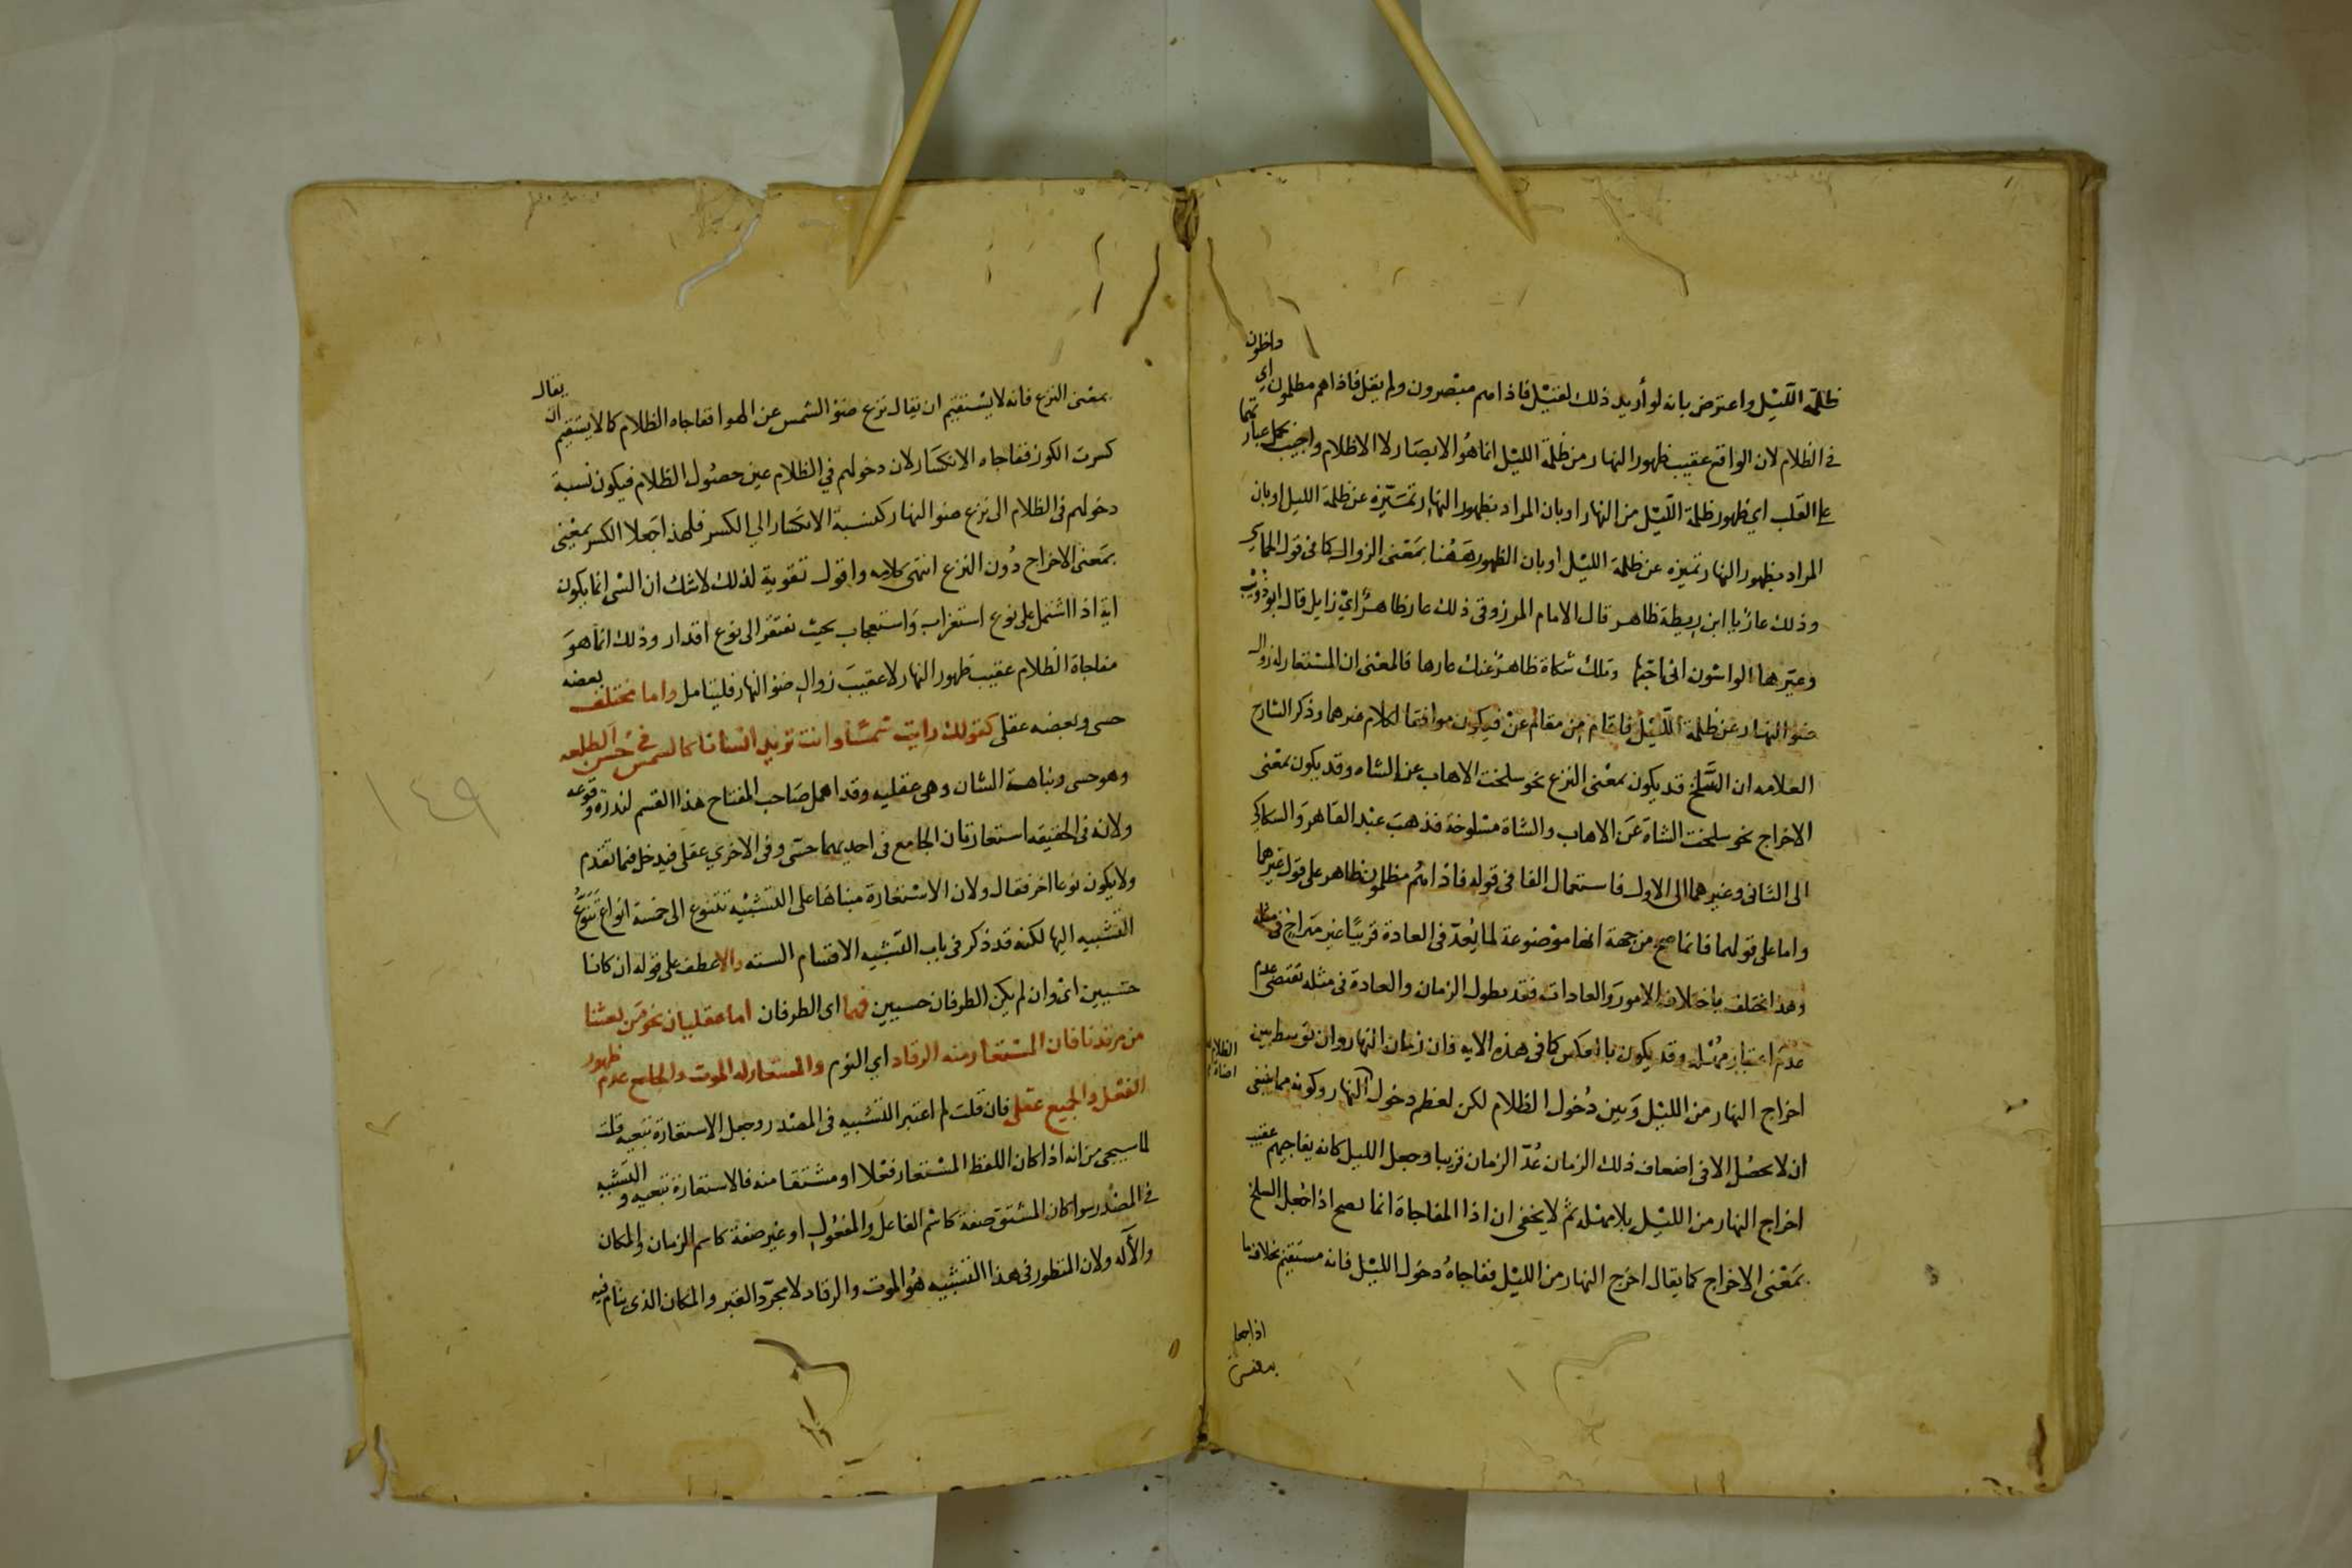 ظلمة اللّيل واعترض بانه لو أريد ذلك لقيل فاذا هم مبصرون ولم يقل فاذا هم مظلمون اي داخلون
في الظلام لان الواقع عقيب ظهور النهار من ظلمة الليل انما هو الابصار لا الاظلام واجيب بحمل عبارتهما
على القلب اي ظهور ظلمة الليل من النهار او بان المراد بظهور النهار تميّزه عن ظلمة الليل او بان
المراد بظهور النهار تميزه عن ظلمة الليل او بان الظهور ههنا بمعنى الزوال كما في قول الحماسي
وذلك عار يا ابن ريطة ظاهر قال الامام المرزوقي ذلك عار ظاهر اي زايل قال ابو ذويب
وعيّرها الواشون اني احبّها وتلك شكاة ظاهر عنك عارها فالمعنى ان المستعار له زوال
ضوء النهار عن ظلمة اللّيل فاقام من مقام عن فيكون موافقا لكلام غيرهما وذكر الشارح
العلامه ان السّلخ قد يكون بمعنى النزع نحو سلخت الاهاب عن الشاه وقد يكون بمعنى
الاخراج نحو سلخت الشاة عن الاهاب والشاة مسلوخة فذهب عبد القاهر والسكاكي
الى الثاني وغيرهما الى الاول فاستعمال الفا في قوله فاذا هم مظلمون ظاهر على قول غيرهما
واما على قولهما فانما صح من جهة انها موضوعة لما يُعدّ في العادة قريبًا غير متراخ في مثله
وهذا يختلف باختلاف الامور والعادات فقد يطول الزمان والعادة في مثله تقتضي عدم
عدم اعتبار مهلة وقد يكون بالعكس كما في هذه الايه فان زمان النهار وان توسط بين
اخراج النهار من الليل وبين دخول الظلام لكن لعظم دخول النهار وكونه مما ينبغي
الظلام بعد اضاءة
ان لا يحصل الا في اضعاف ذلك الزمان عُدّ الزمان قريبا وجعل الليل كانه يفاجيهم عقيب
اخراج النهار من الليل بلا مهلة ثم لا يخفى ان اذا المفاجاة انما يصح اذا جعل السلخ
بمعنى الاخراج كما يقال اخرج النهار من الليل ففاجاه دخول الليل فانه مستقيم بخلاف ما
اذا جعل
بمعنى
بمعنى النزع فانه لا يستقيم ان يقال نزع ضوء الشمس عن الهوا ففاجاه الظلام كما لا يستقيم ان يقال
كسرت الكوز ففاجاه الانكسار لان دخولهم في الظلام عين حصول الظلام فيكون نسبة
دخولهم في الظلام الى نزع ضوء النهار كنسبة الانكسار الى الكسر فلهذا جعلا الكسر بمعنى
بمعنى الاخراج دون النزع انتهى كلامه واقول تقوية لذلك لا شك ان الشي انما يكون
اية اذا اشتمل على نوع استغراب واستعجاب بحيث تفتقر الى نوع اقدار وذلك انما هو
مفاجاة الظلام عقيب ظهور النهار لا عقيب زوال ضوء النهار فليتامل واما مختلف بعضه
حسى وبعضه عقلى كقولك رايت شمسًا وانت تريد انسانا كالشمس في حسن الطلعه
وهو حسى ونباهة الشان وهى عقليه وقد اهمل صاحب المفتاح هذا القسم لندرة وقوعه
ولانه في الحقيقه استعارتان الجامع في احديهما حسّى وفي الاخرى عقلى فيدخل فيما تقدم
ولا يكون نوعا اخر فقال ولان الاستعارة مبناها على التشبيه تتنوع الى خمسة انواع تنوّع
التشبيه اليها لكنه قد ذكر في باب التشبيه الاقسام السته والا عطف على قوله ان كانا
حسيين اى وان لم يكن الطرفان حسيين فهما اى الطرفان اما عقليان نحو من بعثنا
من مرقدنا فان المستعار منه الرقاد اي النوم والمستعار له الموت والجامع عدم ظهور
الفعل والجميع عقلى فان قلت لم اعتبر التشبيه في المصدر وجعل الاستعارة تبعيه قلت
لما سيجى من انه اذا كان اللفظ المستعار فعلا او مشتقا منه فالاستعارة تبعيه والتشبيه
في المصدر سوا كان المشتق صفة كاسم الفاعل والمفعول او غير صفة كاسم الزمان والمكان
والآله ولان المنظور في هذا التشبيه هو الموت والرقاد لا مجرّد القبر والمكان الذى ينام فيه
١٤٩